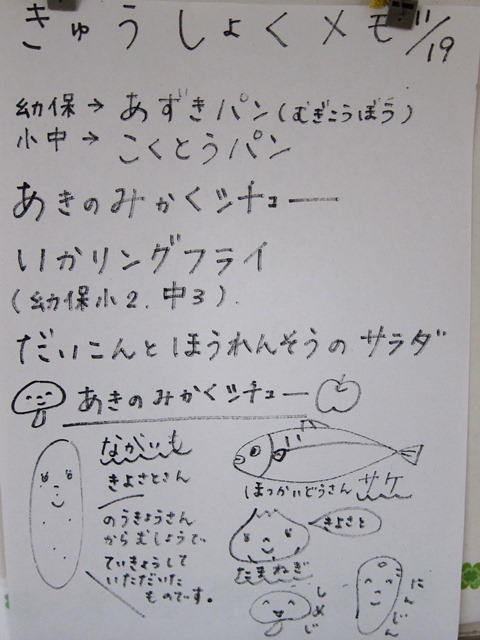 きゅうしょくメモ 11/19
幼保→ あずきパン(むぎこうぼう)
小中→ こくとうパン
あきのみかくシチュー
いかリングフライ
(幼保小2.中3).
だいこんとほうれんそうのサラダ
あきのみかくシチュー
ながいも
きよさとさん
のうきょうさん
からむしょうで
ていきょうして
いただいた
ものです。
ほっかいどうさん サケ
きよさと
たまねぎ
しめじ
にんじん